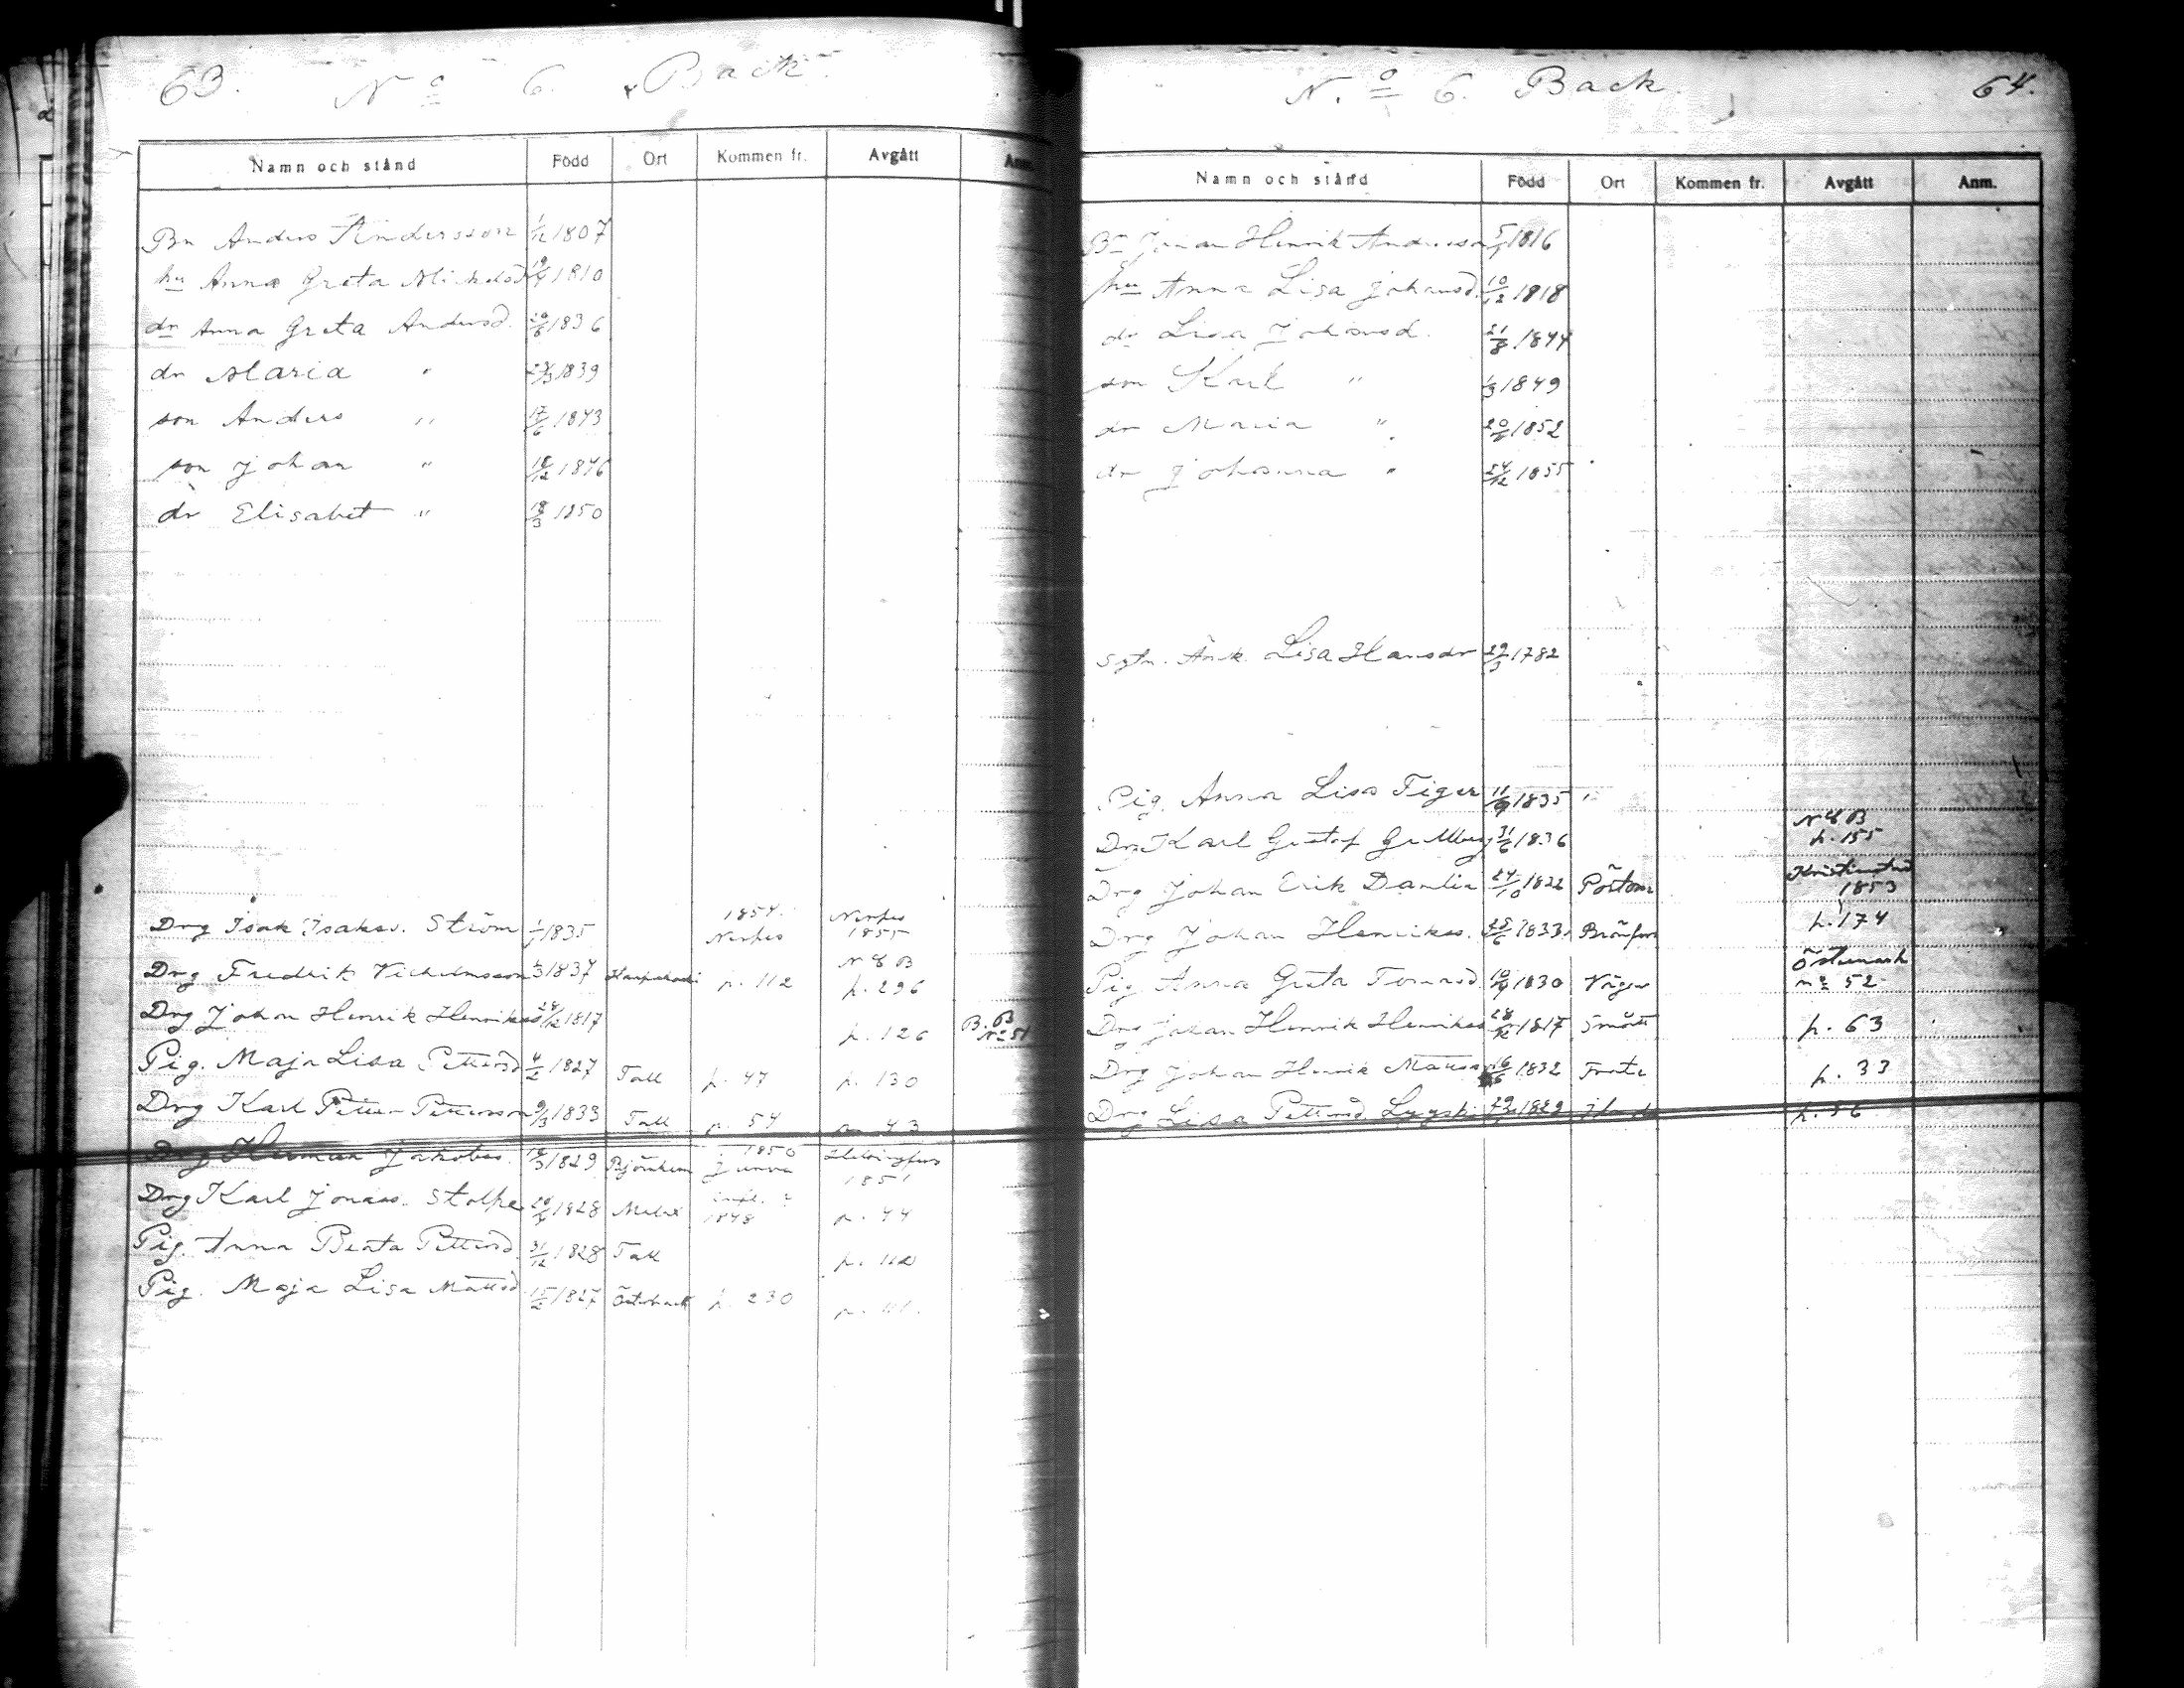 63. No 6. Back
Namn och stånd Född Ort Kommen fr. Avgått Anm.
Bn Anders Andersson 1/12 1807
hu Anna Greta 1810
dr Anna Greta Andersd. 20/6 1836
dr Maria " 1839
son Anders " 17/6 1843
son Johan " 18/12 1846
dr Elisabet " 18/3 1850
Drg Isak Isakss. Ström 1835 1854 Nerpes Nerpes 1855
Drg Fredrik Vilhelmsson 1837 p. 112 N & B p. 296
Drg Johan Henrik Henrikss 1817 p. 126 B. B No 51
Pig. Maja Lisa Pettersd 4/2 1827 Tall p. 47 p. 130
Drg Karl Petter Pettersson 9/3 1833 Tall p. 54 p. 43
Drg Herman Jakobss. 1829 1850 Helsingfors 1851
Drg Karl Jonass. Stolpe 1828 1848 p. 44
Pig. Anna Beata Pettersd. 31/12 1828 Tall p. 112
Pig. Maja Lisa Mattsd 15/2 1827 p. 230
N.o 6. Back 64.
Namn och stånd Född Ort Kommen fr. Avgått Anm.
Bn Johan Henrik Andersson 1816
hu Anna Lisa Johansd. 10/12 1818
dr Lisa Johansd. 21/8 1844
son Karl " 1/3 1849
dr Maria " 1852
dr Johanna " 24/12 1855
Änk. Lisa Hansdr 29/3 1782
Pig. Anna Lisa Tiger 1835
Drg Karl Gustaf 31/6 1836 N & B p. 155
Drg Johan Erik 24/10 1822 Pörtom Kristinestad 1853
Drg Johan Henrikss. 25/6 1833 p. 174
Pig Anna Greta Tomasd 1830 Östermark no 52
Drg Johan Henrik Henrikss 1817 Smått p. 63
Drg Johan Henrik Mattss 16/6 1832 p. 33
Drg Lisa Pettersd 1829 p. 56